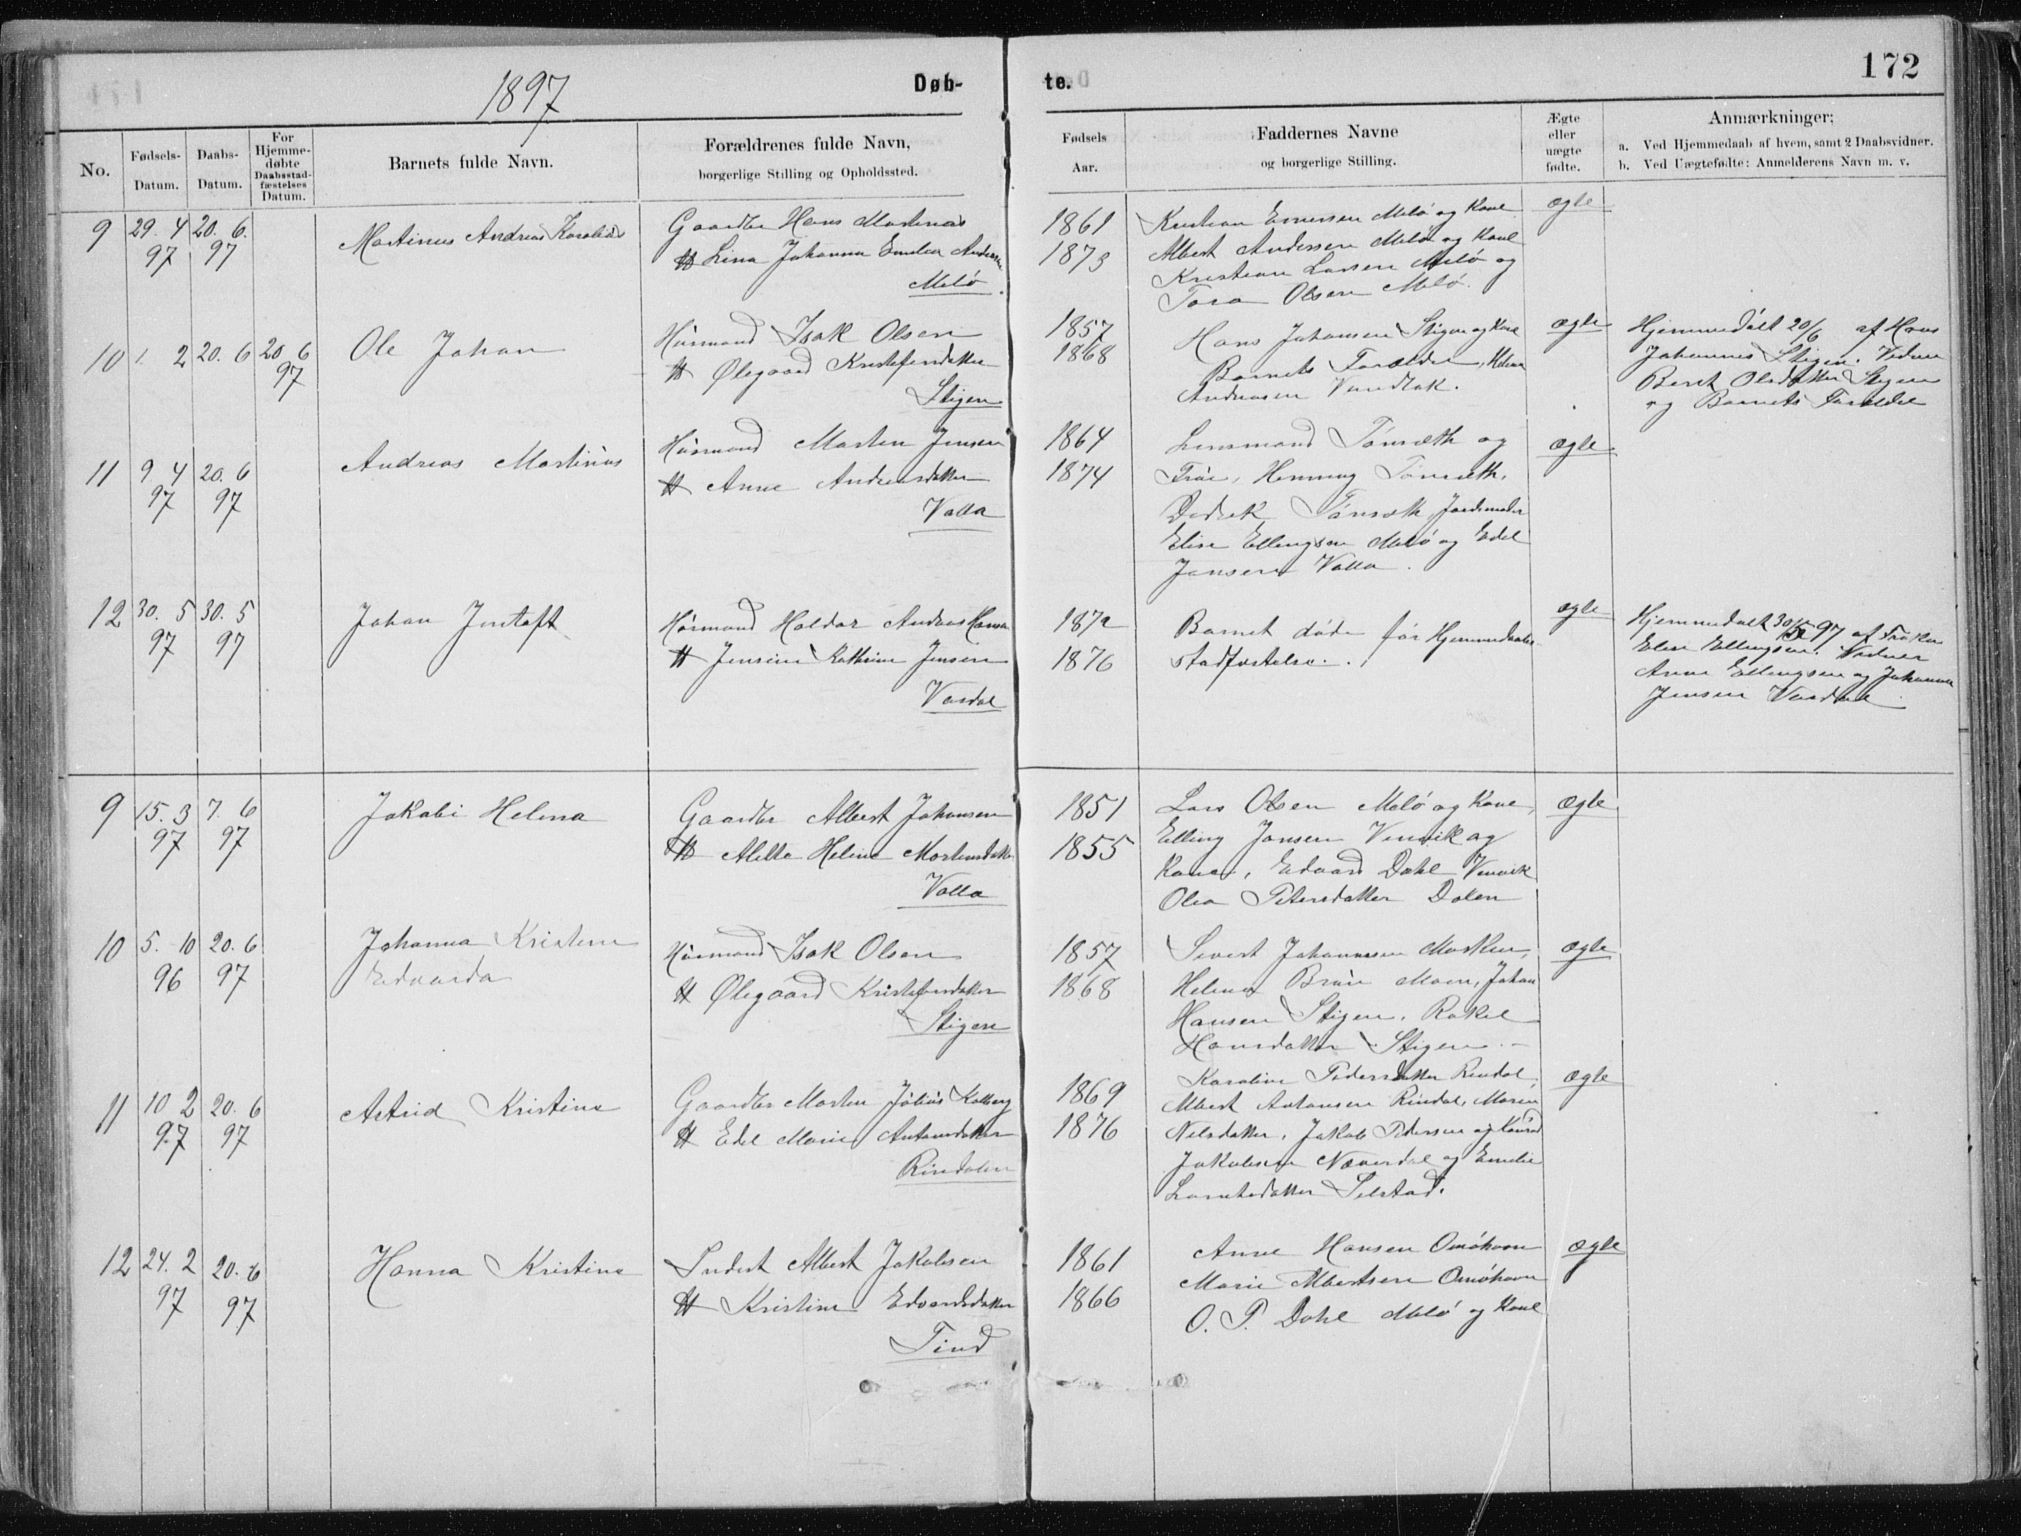 1897
Døb-
te.
172
No.
Fødsels-
Datum.
Daabs-
Datum.
For
Hjemme-
døbte
Daabsstad-
fæstelses
Datum.
Barnets fulde Navn.
Forældrenes fulde Navn,
borgerlige Stilling og Opholdssted.
Fødsels
Aar.
Faddernes Navne
og borgerlige Stilling.
Ægte
eller
uægte
fødte.
Anmærkninger;
a. Ved Hjemmedaab af hvem, samt 2 Daabsvidner.
b. Ved Uægtefødte: Anmelderens Navn m. v.
9 29. 4 20. 6.
97 97
Martinus Andreas
Gaardbr Hans Martinus
H Lina Johanna Emilia
Melö
1861
1873
Kristian Meló og Kone
Albert Andersen Meló og Kone
Kristian Larsen Meló og
Tora Olsen Meló.
ægte
10 1. 2 20. 6 20 6
97
Ole Johan
Húsmand Isak Olsen
H Ølegaard
Stigen
1857
1868
Hans Johansen Stigen og Kone
Barnets Forældre,
Andreasen
ægte
Hjemmedöbt 20/6 af Hans
Johannes Stigen. Vidner
Berit Olsdatter Stigen
og Barnets Forældre
11 9 4 20. 6
97 97
Andreas Martinús
Húsmand Morten Jensen
H Anne Andreasdatter
Valla
1864
1874
Lensmand Tönseth og
Frúe, Henning Tönseth,
Didrik Tönseth, Jordemoder
Elise Ellingsen Meló og Edel
Jansen Valla.
ægte
12 30. 5 30. 5
97 97
Johan Jentoft
Húsmand Haldor Andreas Hansen
H Jensine Kathrine Jensen
Vardal
1872
1876
Barnet döde för Hjemmedaabs
stadfæstelse.
ægte
Hjemmedöbt 30/5 97 af Fröken
Elise Ellingsen. Vidner
Anna Ellingsen og Johanna
Jensen Vardal
9 15. 3 7. 6
97 97
Jakobi Helena
Gaardbr Albert Johansen
H Alette Helene Mortensdatter
Valla
1851
1855
Lars Olsen Meló og Kone,
Elling Jansen Venvik og
Kone, Edvard Dahl Venvik
Olea Petersdatter Dalen
ægte
10 5. 10 20. 6
96 97
Johanna Kristine
Edvarda
Húsmand Isak Olsen
H Ølegaard
Stigen
1857
1868
Sivert Johannesen
Helena Brún Moen, Johan
Hansen Stigen, Rakel
Hansdatter Stigen.
ægte
11 10. 2 20. 6
97 97
Astrid Kristine
Gaardbr Morten Júliús Kolberg
H Edel Marie Antonsdatter
Rindalen
1869
1876
Karoline Pedersdatter Rindal,
Albert Antonsen Rindal, Maren
Nilsdatter, Jakob Pedersen og Konrad
Jakobsen Næverdal og Emilie
Selstad.
ægte
12 24. 2 20. 6
97 97
Hanna Kristine
Inderst Albert Jakobsen
H Kristine Edvardsdatter
Tind
1861
1866
Anne Hansen Omöhavn
Marie Albertsen Omöhavn
O. P. Dahl Meló og Kone
ægte